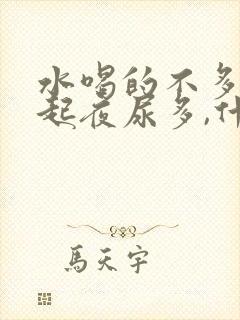 水喝的不多
起夜尿多,什
馬天宇